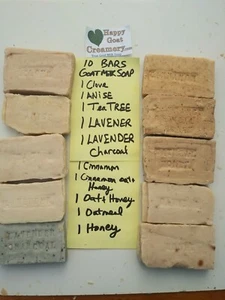 Happy
Goat
Creamery.com
10 BARS
GOAT MILK SOAP
1 Clove
1 ANISE
1 Tea TREE
1 LAVENER
1 LAVENDER
Charcoal
1 Cinnamon
1 Cinnamon oats
Honey
1 Oat & Honey
1 Oatmeal
1 Honey